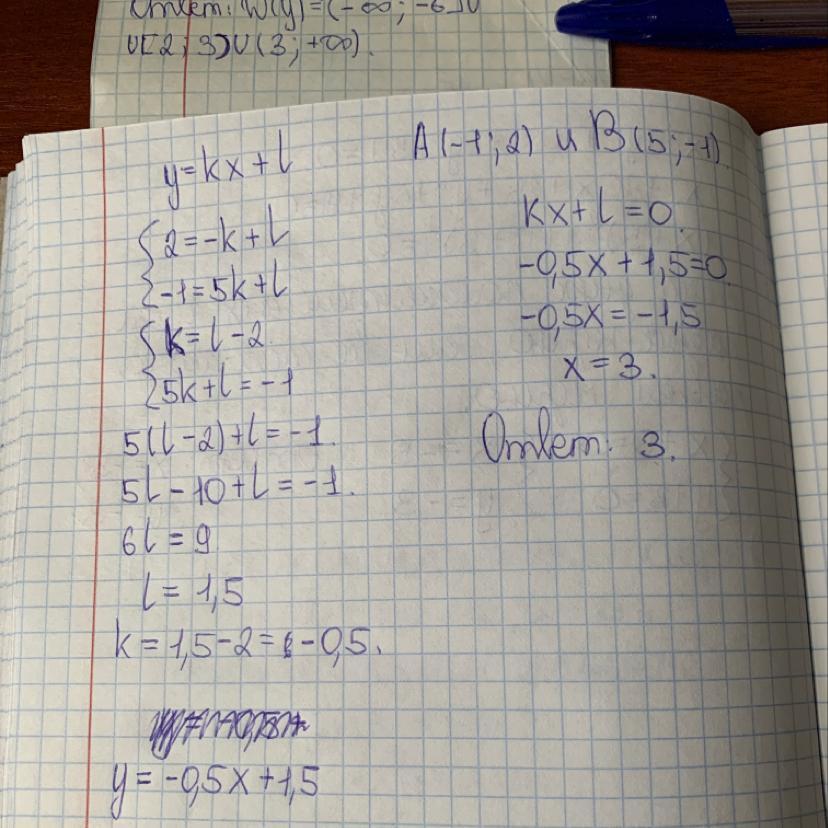 Ответ: W(y)=(-∞; -6]U
U[2; 3)U(3; +∞).
y=kx+l
{2=-k+l
{-1=5k+l
{k=l-2
{5k+l=-1
5(l-2)+l=-1.
5l-10+l=-1.
6l=9
l=1,5
k=1,5-2=-0,5.
y=-0,5x+1,5
A(-1; 2) и B(5; -1)
kx+l=0.
-0,5x+1,5=0.
-0,5x=-1,5
x=3.
Ответ: 3.